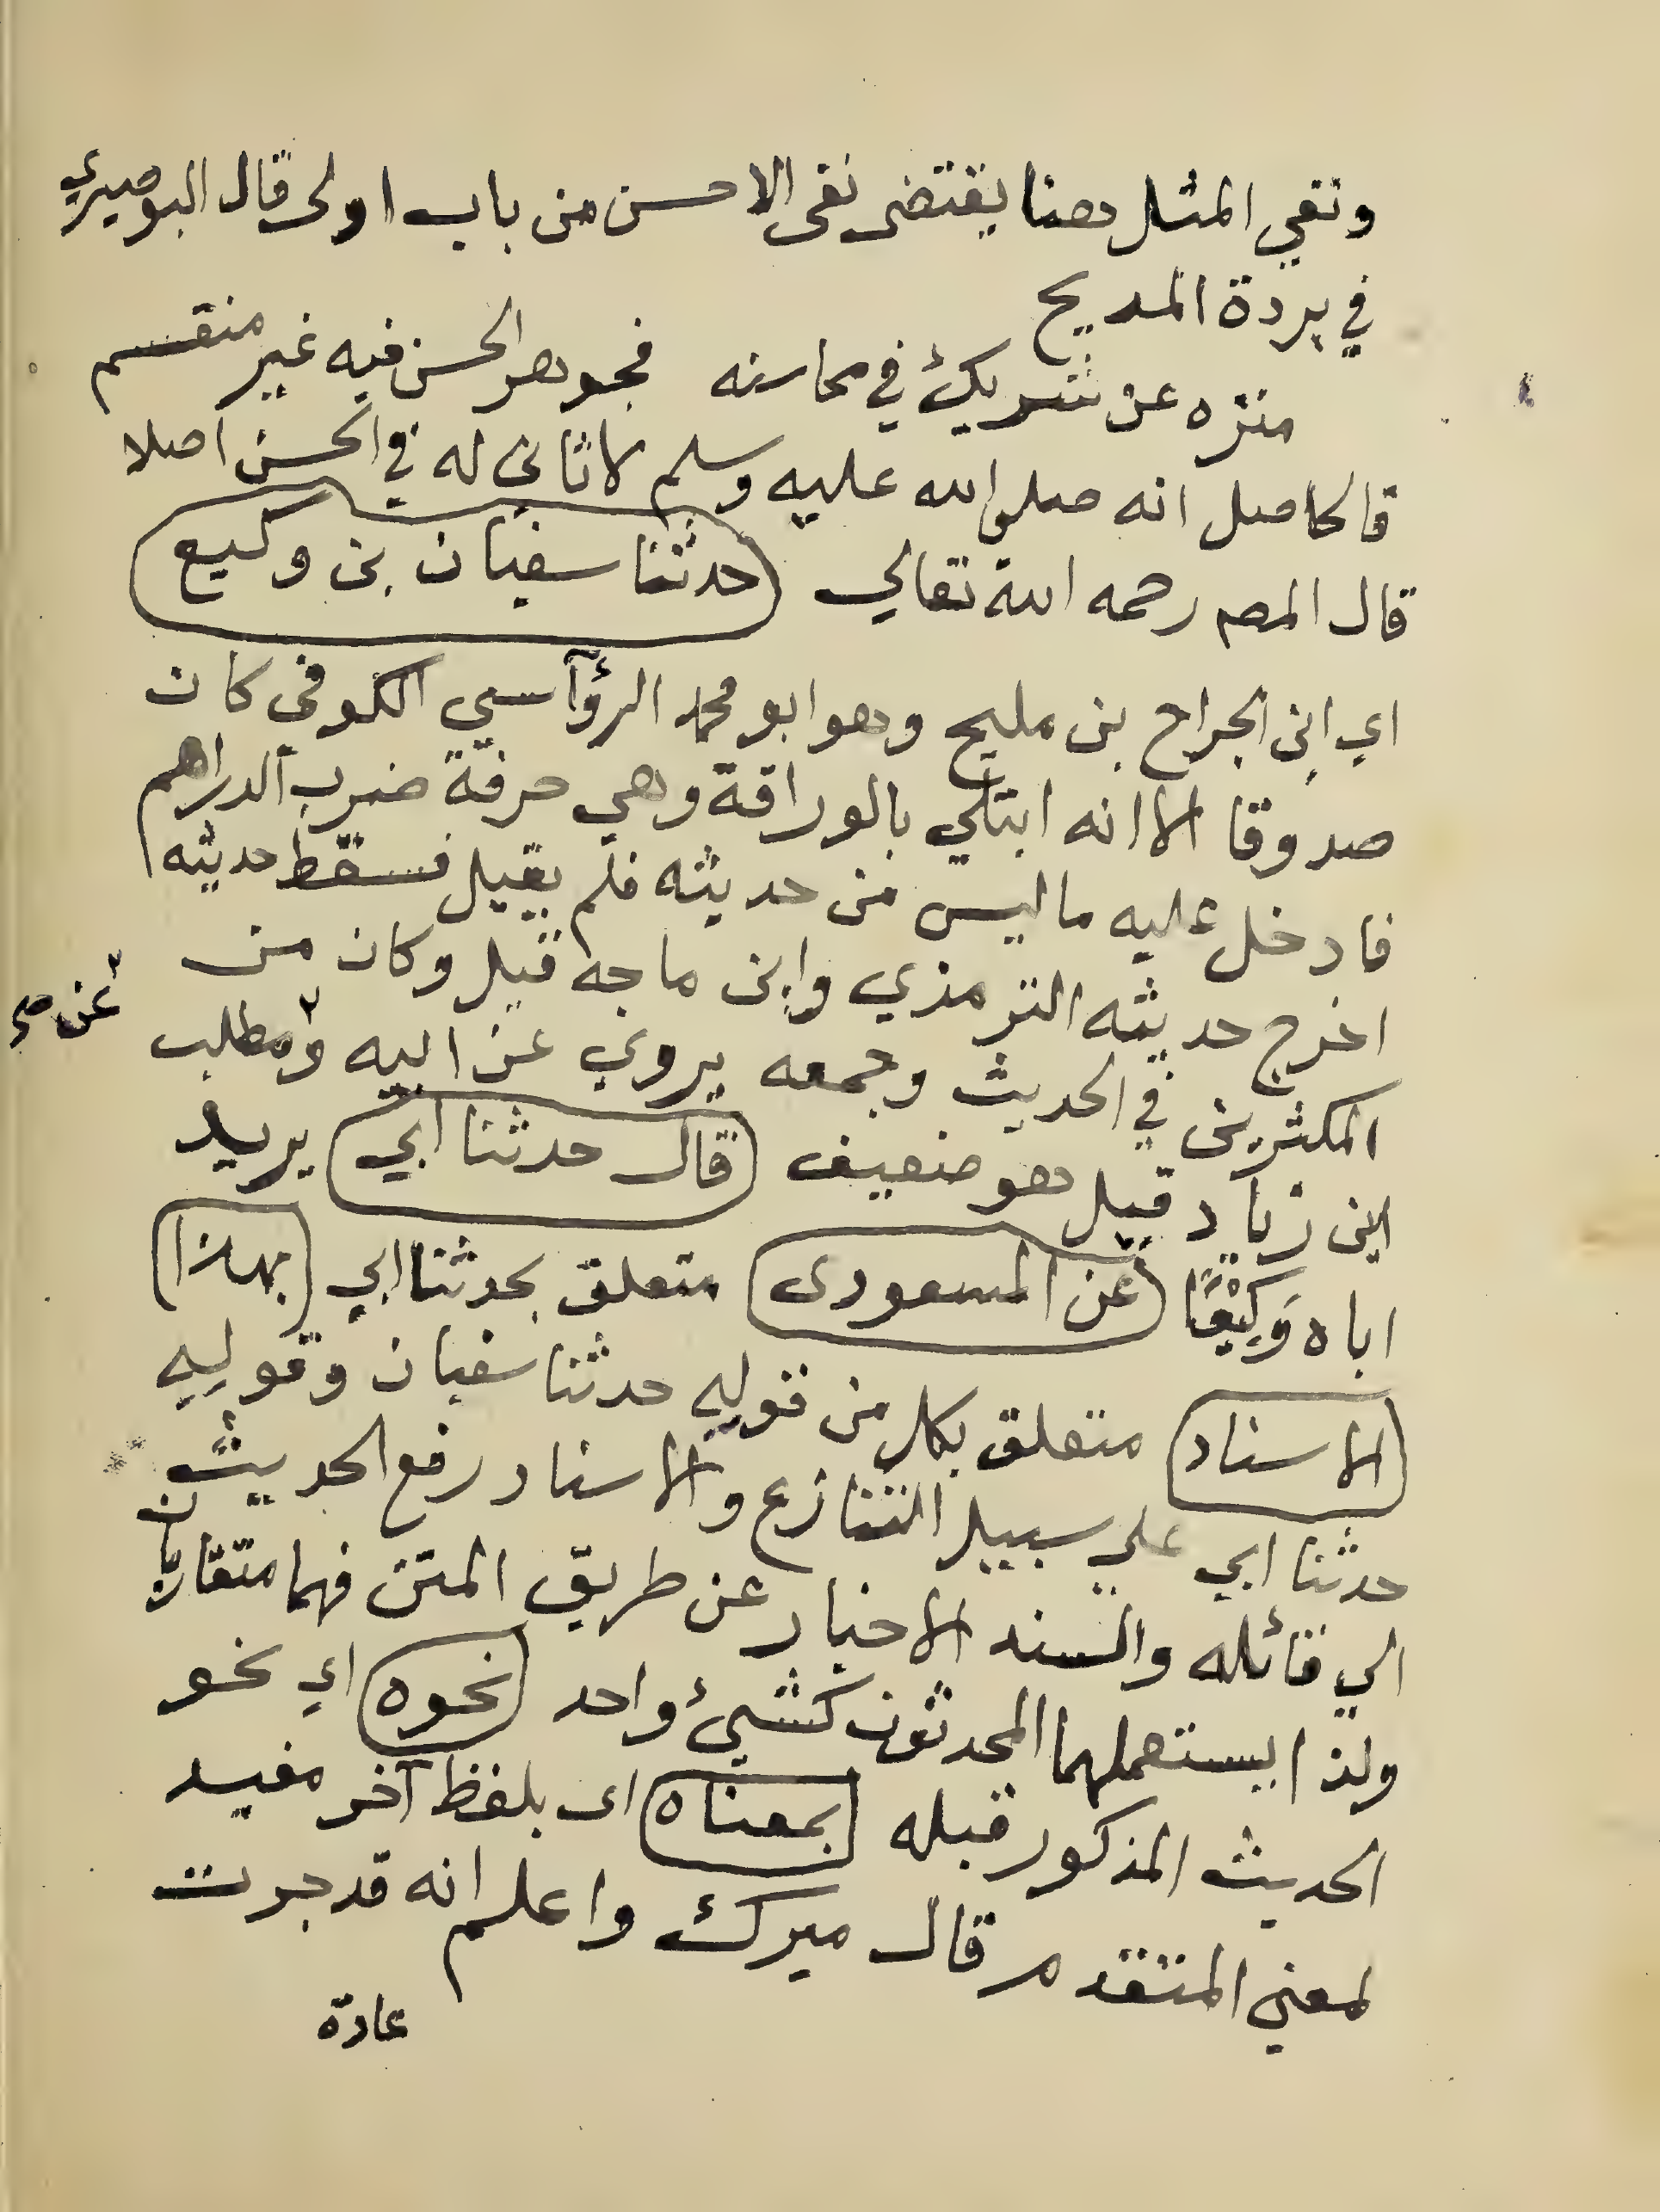 ونفي المثل هنا يقتضى نفى الاحسن من باب اولى قال البوصيري
في بردة المديح
منزه عن شريك في محاسنه فجوهر الحسن فيه غير منقسم
فالحاصل انه صلى الله عليه وسلم لا ثانى له في الحسن اصلا
قال المصم رحمه الله تعالي حدثنا سفيان بن وكيع
اي ابن الجراح بن مليح وهو ابو محمد الرؤآسي الكوفي كان
صدوقا الا انه ابتلي بالوراقة وهي حرفة ضرب الدراهم
فادخل عليه ما ليس من حديثه فلم يقبل فسقط حديثه
اخرج حديثه الترمذي وابن ماجه قيل وكان من
المكثرين في الحديث وجمعه يروي عن ابيه و٢مطلب
٢ عن صح
ابن زياد قيل هو ضعيف قال حدثنا ابي يريد
اباه وَكِيْعًا عن المسعودى متعلق بحدثنا ابي بهذا
الاسناد متعلق بكل من قوله حدثنا سفيان وقوله
حدثنا ابي علي سبيل التنازع والاسناد رفع الحديث
الي قائله والسند الاخبار عن طريق المتن فهما متقاربان
ولذا يستعملهما المحدثون كشيئ واحد نحوه اي نحو
الحديث المذكور قبله بمعناه اى بلفظ آخر مفيد
لمعني المتقدم قال ميرك واعلم انه قد جرت
عادة